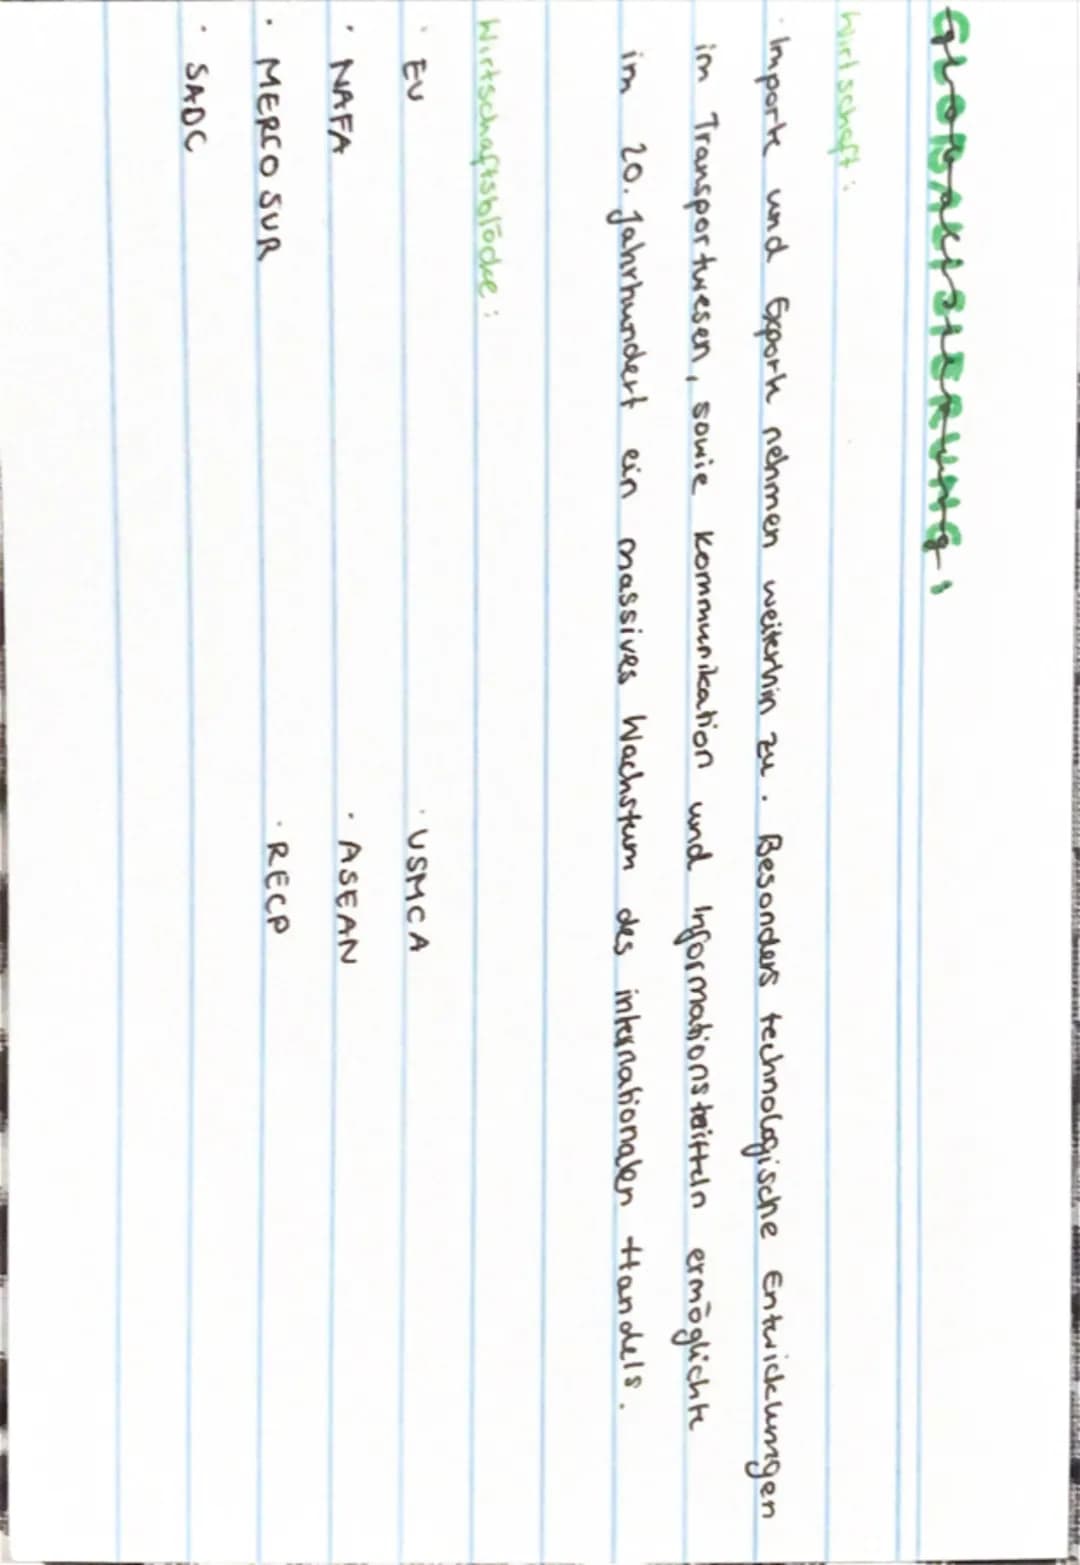 GLOBALISIERUNG:
Wirtschaft:
· Importe und Exporte nehmen weiterhin zu. Besonders technologische Entwicklungen
im Transportwesen, sowie Kommunikation und Informationsteitteln ermöglichte
im 20. Jahrhundert ein massives Wachstum des internationalen Handels.
Wirtschaftsblöcke:
· EU · USMCA
· NAFA · ASEAN
· MERCOSUR · RECP
· SADC